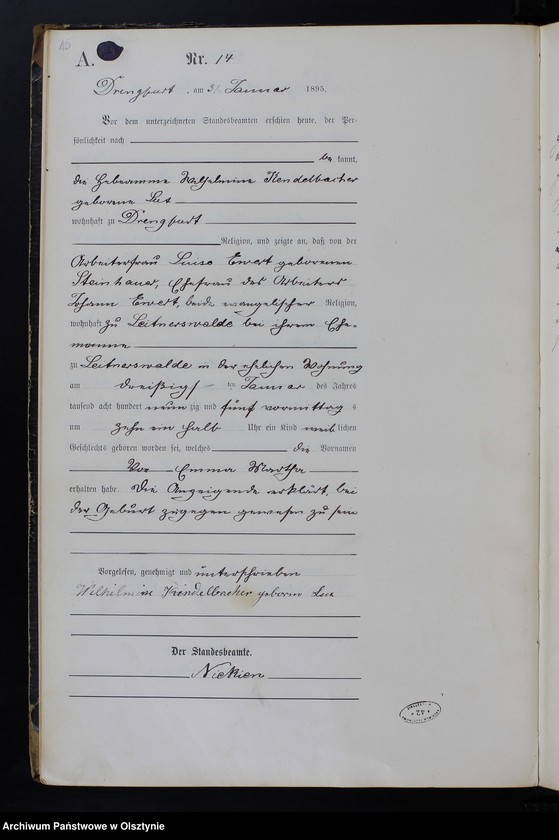 A.
Nr. 14
Drengfurt, am 31. Januar 1895.
Vor dem unterzeichneten Standesbeamten erschien heute, der Per-
sönlichkeit nach
be kannt,
die Hebeamme Wilhelmine Kendelbacher
geborene
wohnhaft zu Drengfurt
Religion, und zeigte an, daß von der
Arbeiterfrau Luise Ewert geborenen
Steinhauer, Ehefrau des Arbeiters
Johann Ewert, beide evangelischer Religion,
wohnhaft zu Leitnerswalde bei ihrem Ehe-
manne
zu Leitnerswalde in der ehelichen Wohnung
am dreißig ten Januar des Jahres
tausend acht hundert neun zig und fünf vormittag s
um zehn ein halb Uhr ein Kind weib lichen
Geschlechts geboren worden sei, welches die Vornamen
Emma Martha
erhalten habe. Die Anzeigende erklärt, bei
der Geburt zugegen gewesen zu sein
Vorgelesen, genehmigt und unterschrieben
Wilhelmine Kendelbacher geboren
Der Standesbeamte.
Nickien
Archiwum Państwowe w Olsztynie